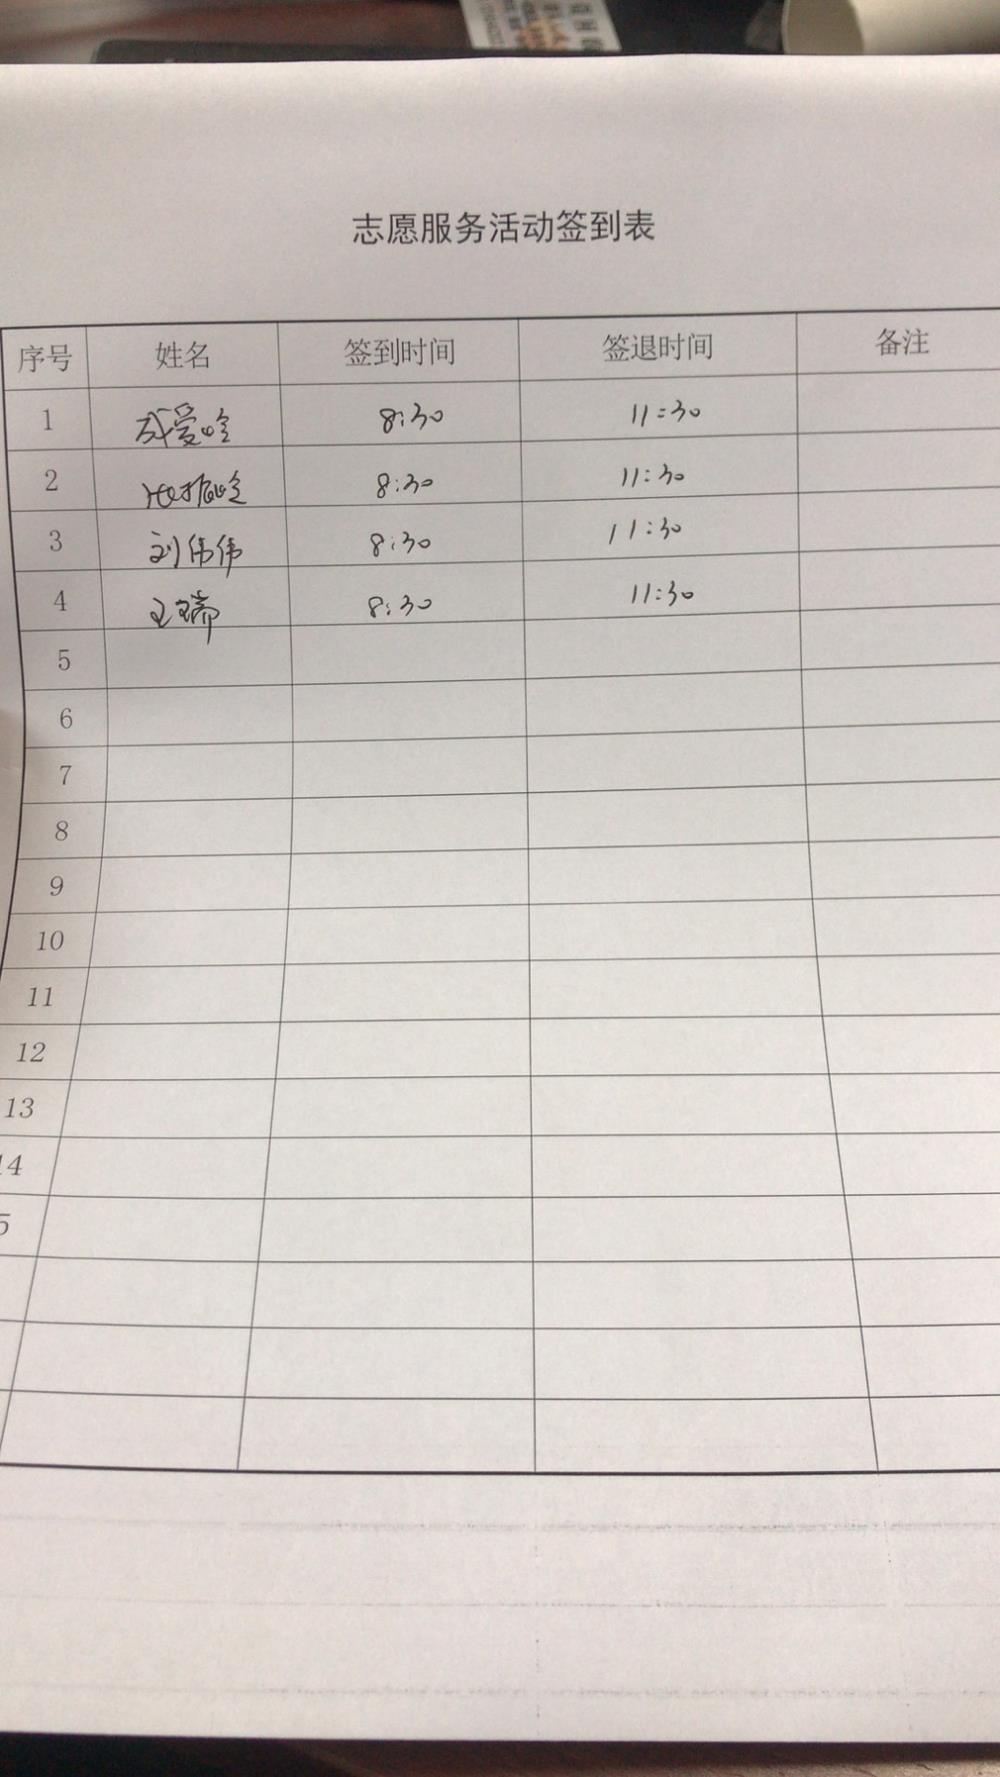 志愿服务活动签到表
序号 姓名 签到时间 签退时间 备注
1 成爱玲 8:30 11:30
2 8:30 11:30
3 刘伟伟 8:30 11:30
4 王瑞 8:30 11:30
5
6
7
8
9
10
11
12
13
14
5